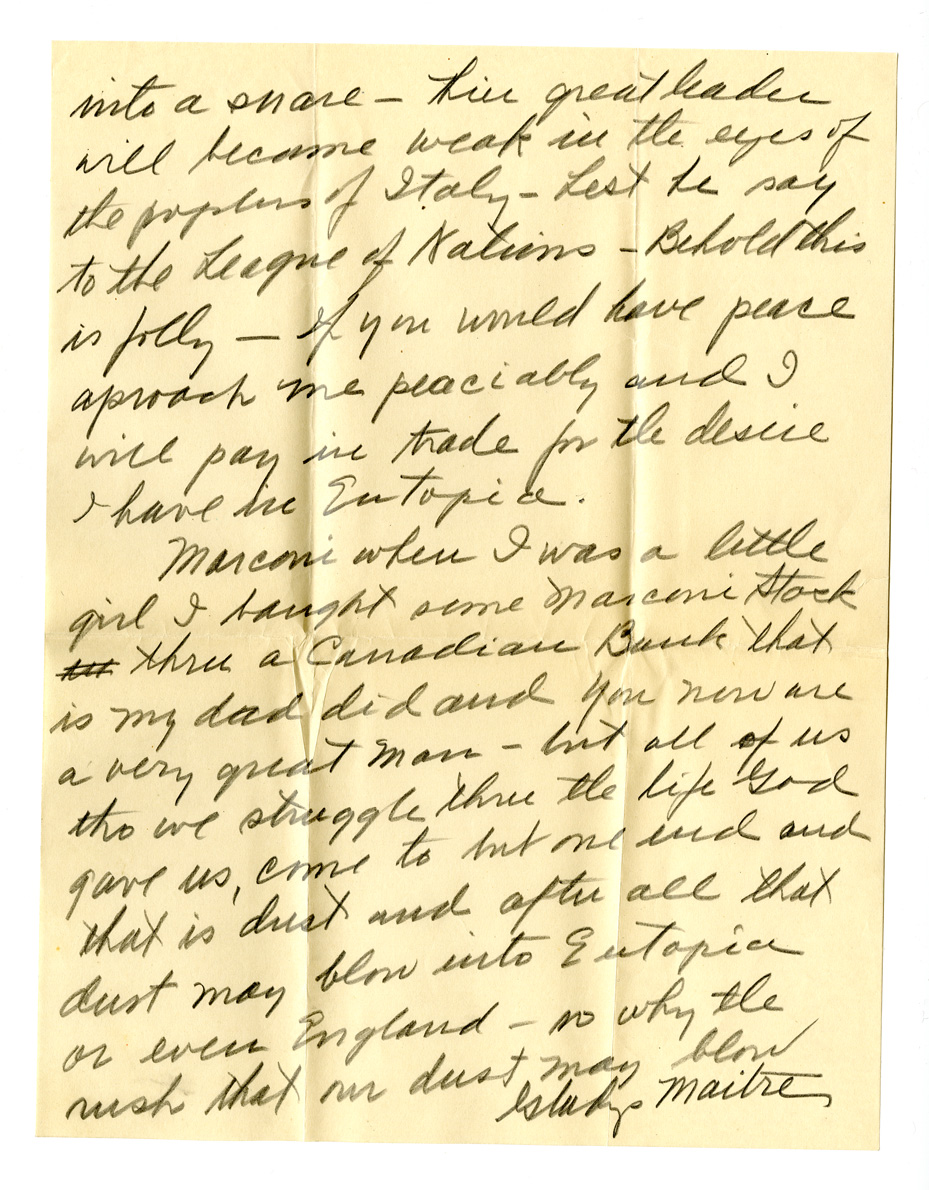 into a snare – thier great leader
will become weak in the eyes of
the poplus of Italy – Lest he say
to the League of Nations – Behold this
is folly – If you would have peace
aproach me peaciably and I
will pay in trade for the desire
I have in Eutopia.
Marconi when I was a little
girl I bought some Marconi Stock
thru a Canadian Bank that
is my dad did and you now are
a very great man – but all of us
tho we struggle thru the life God
gave us, come to but one end and
that is dust and after all that
dust may blow into Eutopia
or even England – so why the
rush that our dust may blow
Gladys Maitre